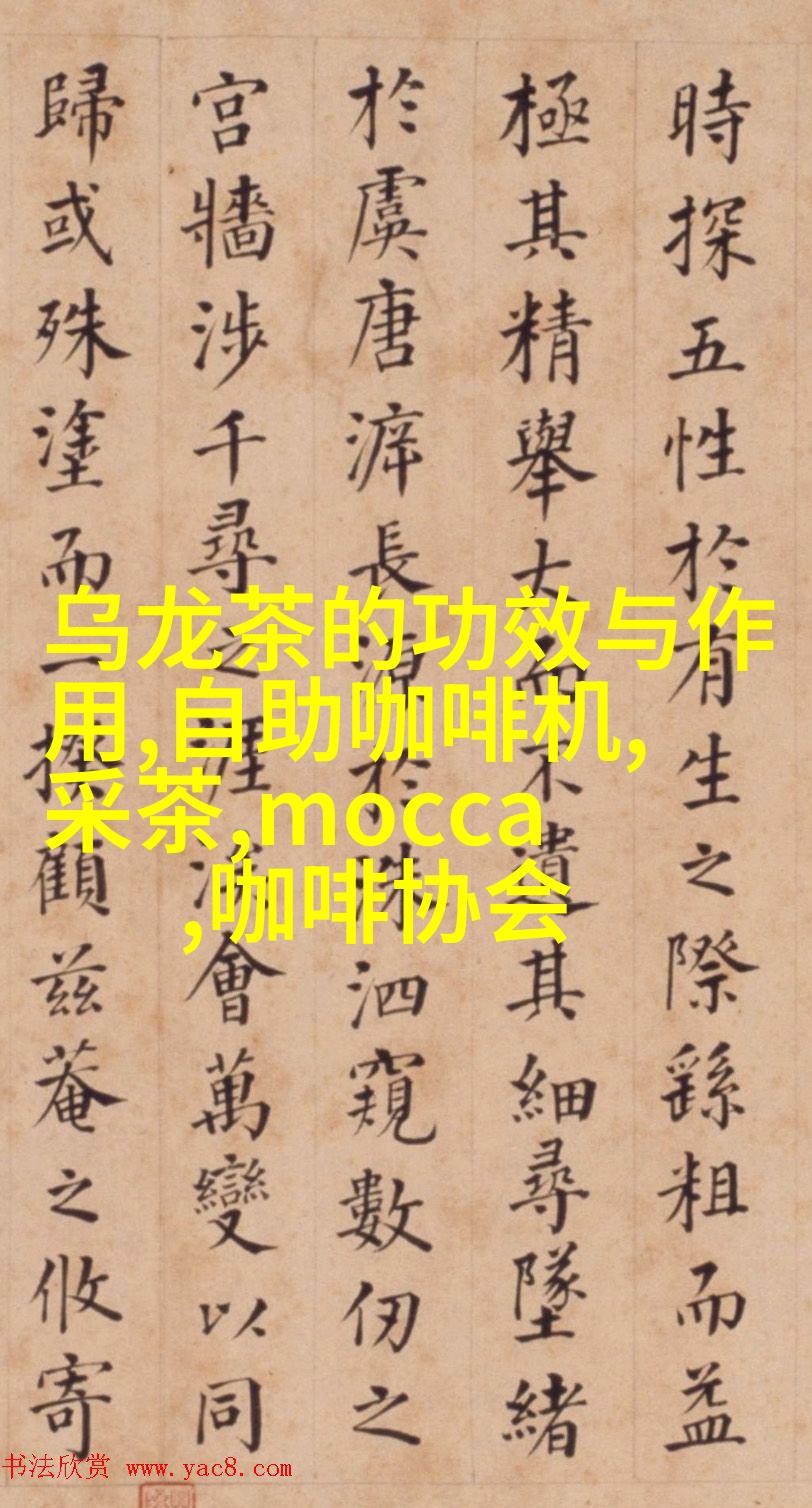 時探五性於有生之際繇粗而益
極其精舉大而不遺其細尋墜緒
於虞唐滹長源於洙泗窺數仞之
宮牆涉千尋之涯涘會萬變以同
歸或殊塗而一揆顧茲菴之攸寄
乌龙茶的功效与作
用,自助咖啡机,
采茶,mocca
,咖啡协会
书法欣赏 www.yac8.com